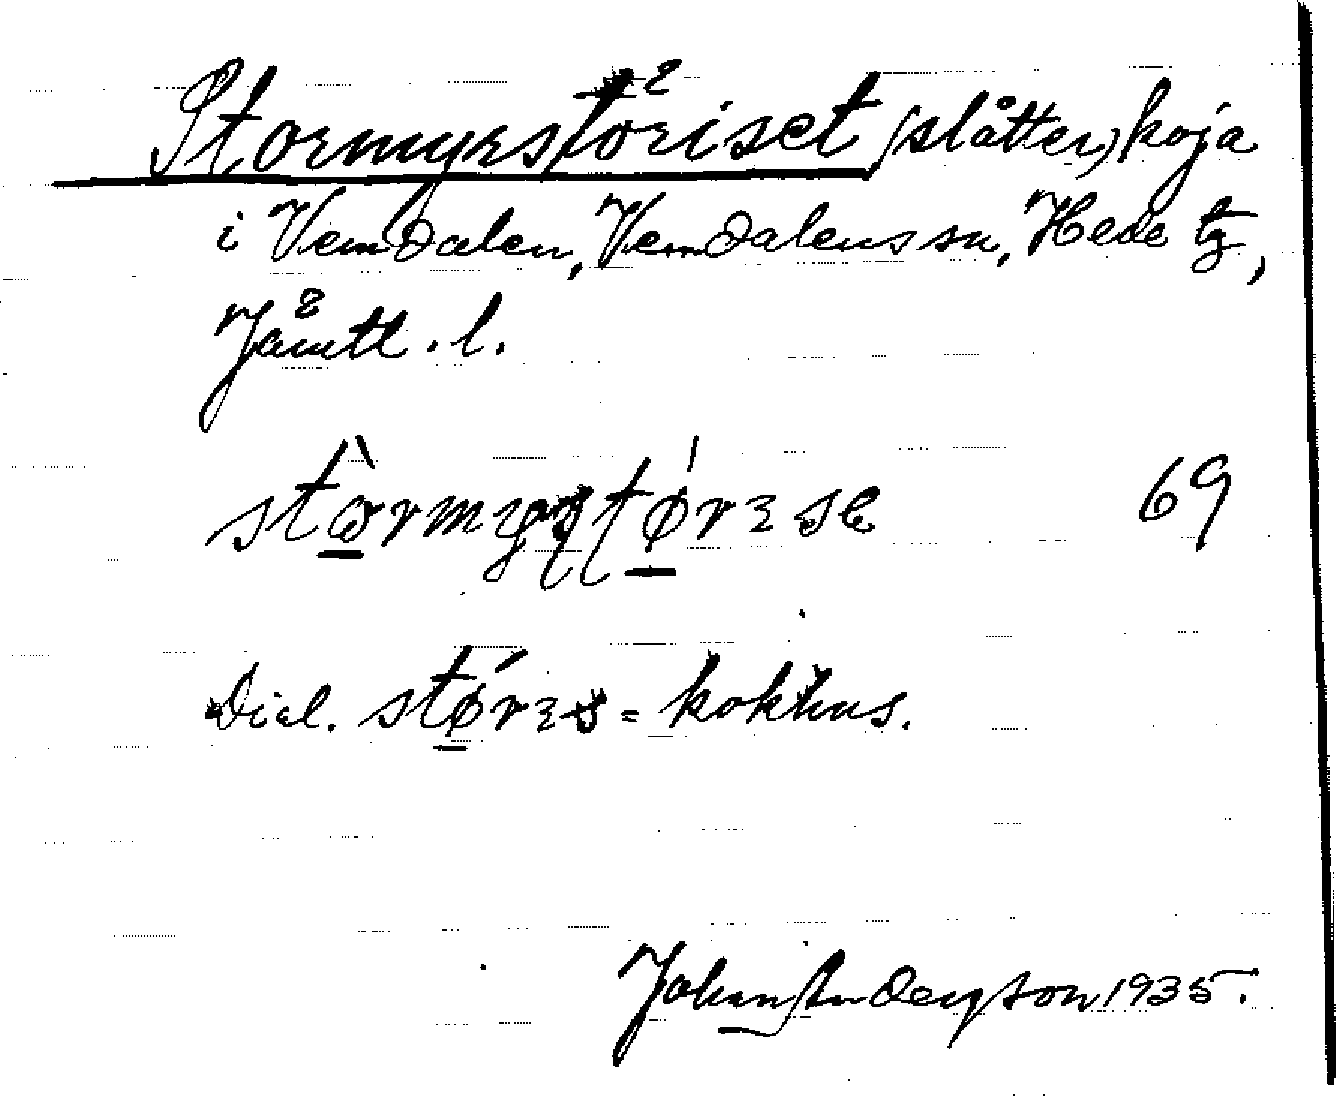 Stormyrstöriset (slåtter)koja
i Vemdalen, Vemdalens sn, Hede tg,
Jämtl. l.
69
Dial. = kokhus.
Johan Anderson 1935.